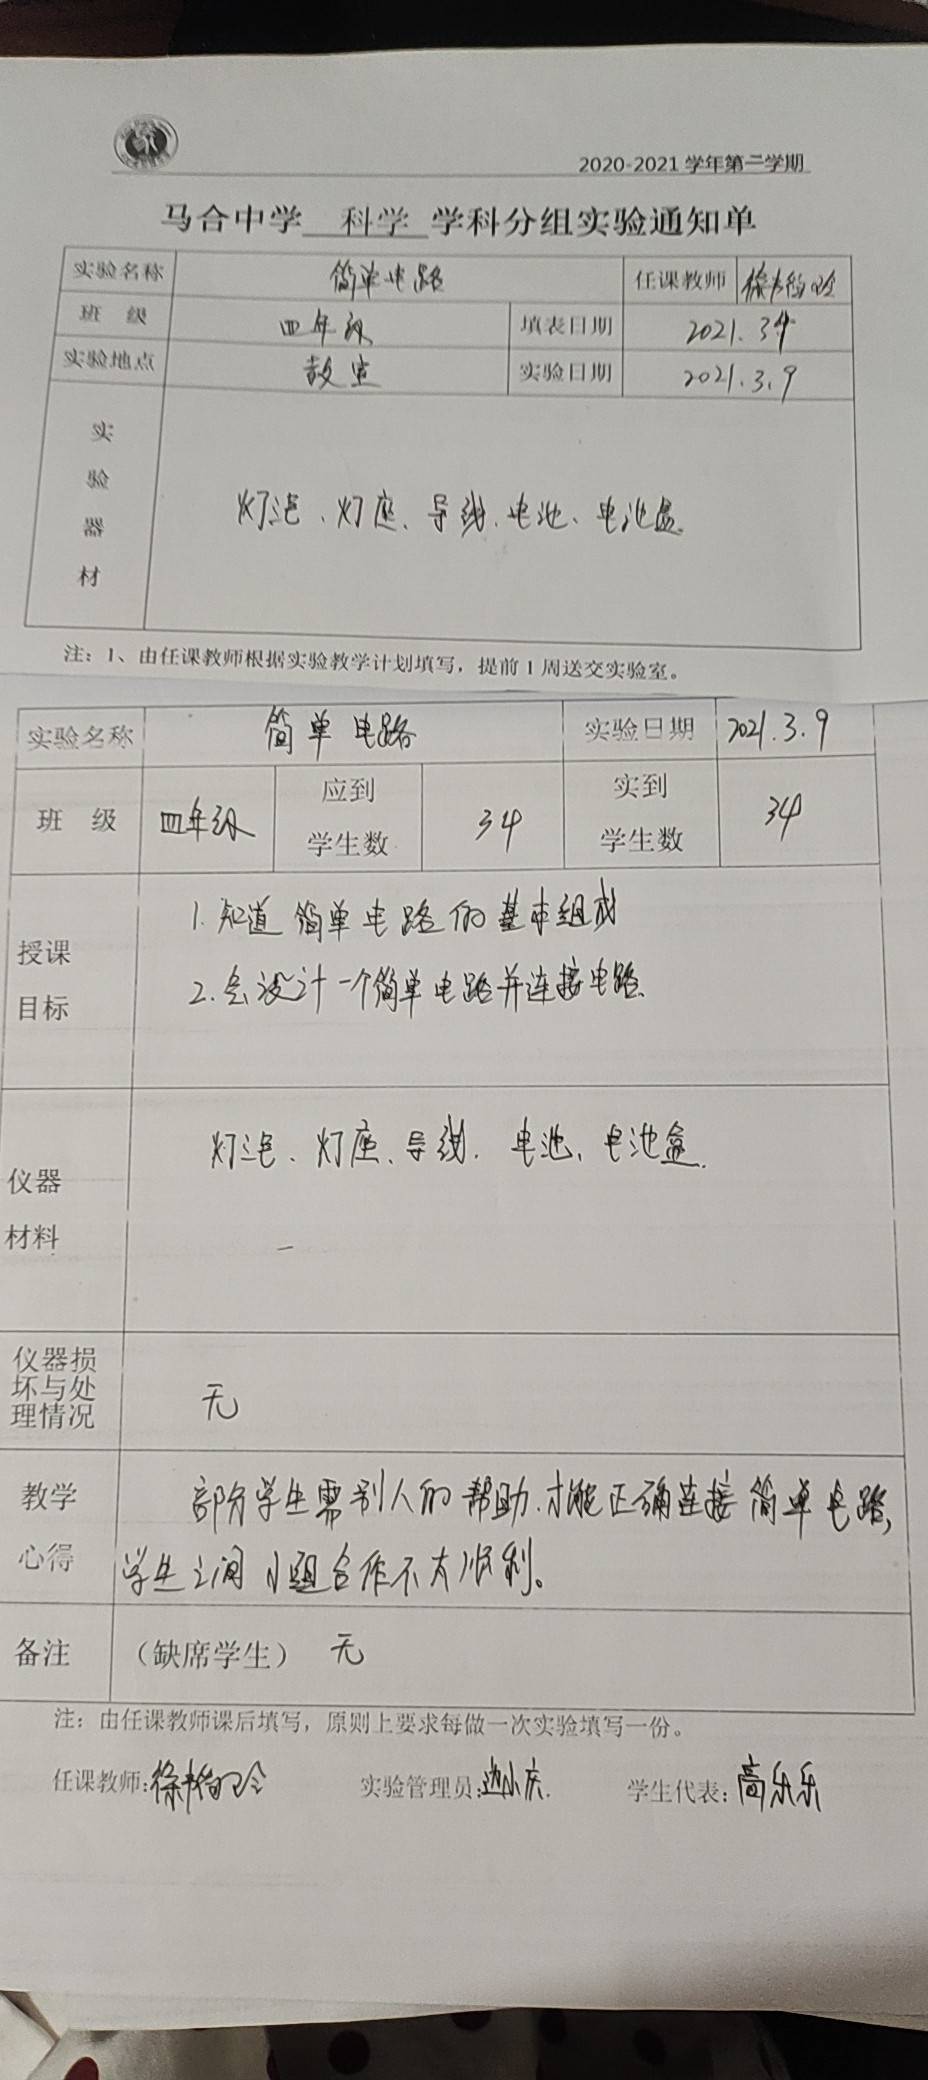 2020-2021 学年第二学期
马合中学 科学 学科分组实验通知单
实验名称 简单电路 任课教师
班 级 四年级 填表日期 2021.3.4
实验地点 教室 实验日期 2021.3.9
实验器材 灯泡、灯座、导线、电池、电池盒.
注：1、由任课教师根据实验教学计划填写，提前 1 周送交实验室。
实验名称 简单电路 实验日期 2021.3.9
班 级 四年级 应到学生数 34 实到学生数 34
授课目标 1.知道简单电路的基本组成
2.会设计一个简单电路并连接电路.
仪器材料 灯泡、灯座、导线. 电池、电池盒.
仪器损坏与处理情况 无
教学心得 部分学生需别人的帮助.才能正确连接简单电路,
学生之间小组合作不太顺利。
备注 （缺席学生） 无
注：由任课教师课后填写，原则上要求每做一次实验填写一份。
任课教师: 实验管理员: 学生代表: 高乐乐